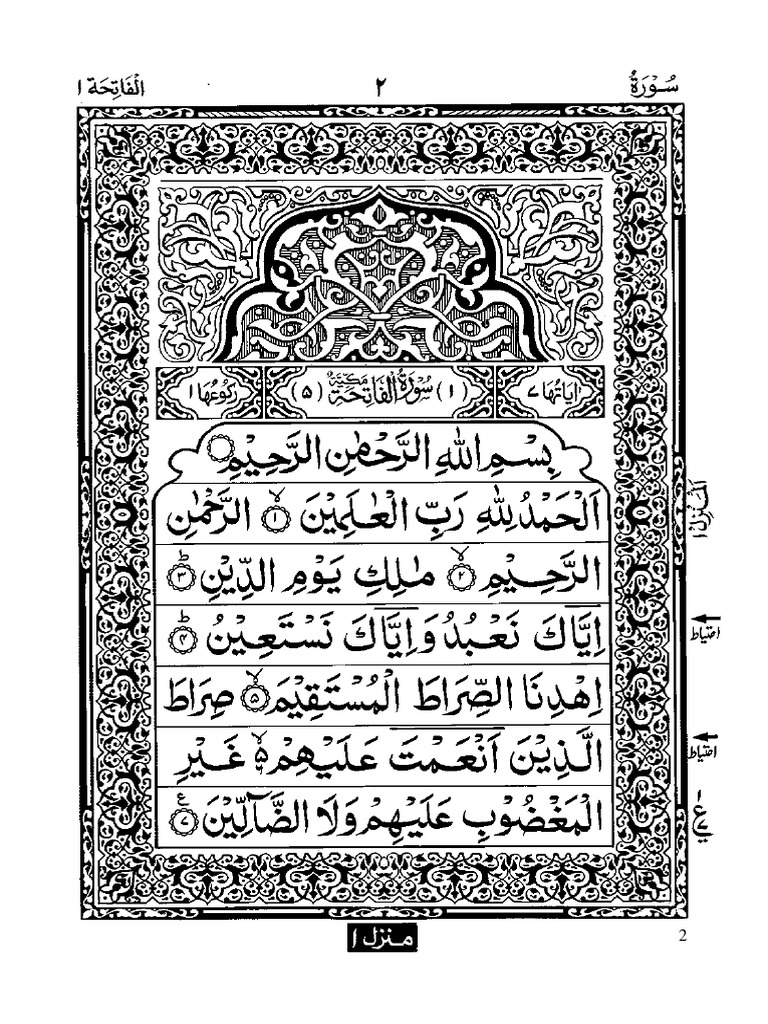 سُوْرَةُ ٢ اَلْفَاتِحَة ١
اٰيَاتُهَا ٧ (١) سُوْرَةُ الْفَاتِحَةِ مَكِّيَّةٌ (٥) رُكُوْعُهَا ١
بِسْمِ اللّٰهِ الرَّحْمٰنِ الرَّحِيْمِ ○
اَلْحَمْدُ لِلّٰهِ رَبِّ الْعٰلَمِيْنَ ۙ ١ الرَّحْمٰنِ
الرَّحِيْمِ ۙ ٢ مٰلِكِ يَوْمِ الدِّيْنِ ؕ ٣
اِيَّاكَ نَعْبُدُ وَ اِيَّاكَ نَسْتَعِيْنُ ؕ ٤
اِهْدِنَا الصِّرَاطَ الْمُسْتَقِيْمَ ۙ ٥ صِرَاطَ
الَّذِيْنَ اَنْعَمْتَ عَلَيْهِمْ ۙ ۵ غَيْرِ
الْمَغْضُوْبِ عَلَيْهِمْ وَلَا الضَّآلِّيْنَ ع ٧
اَلْمَنْزِلُ ١
احتیاط
احتیاط
ع
منزل ١
2